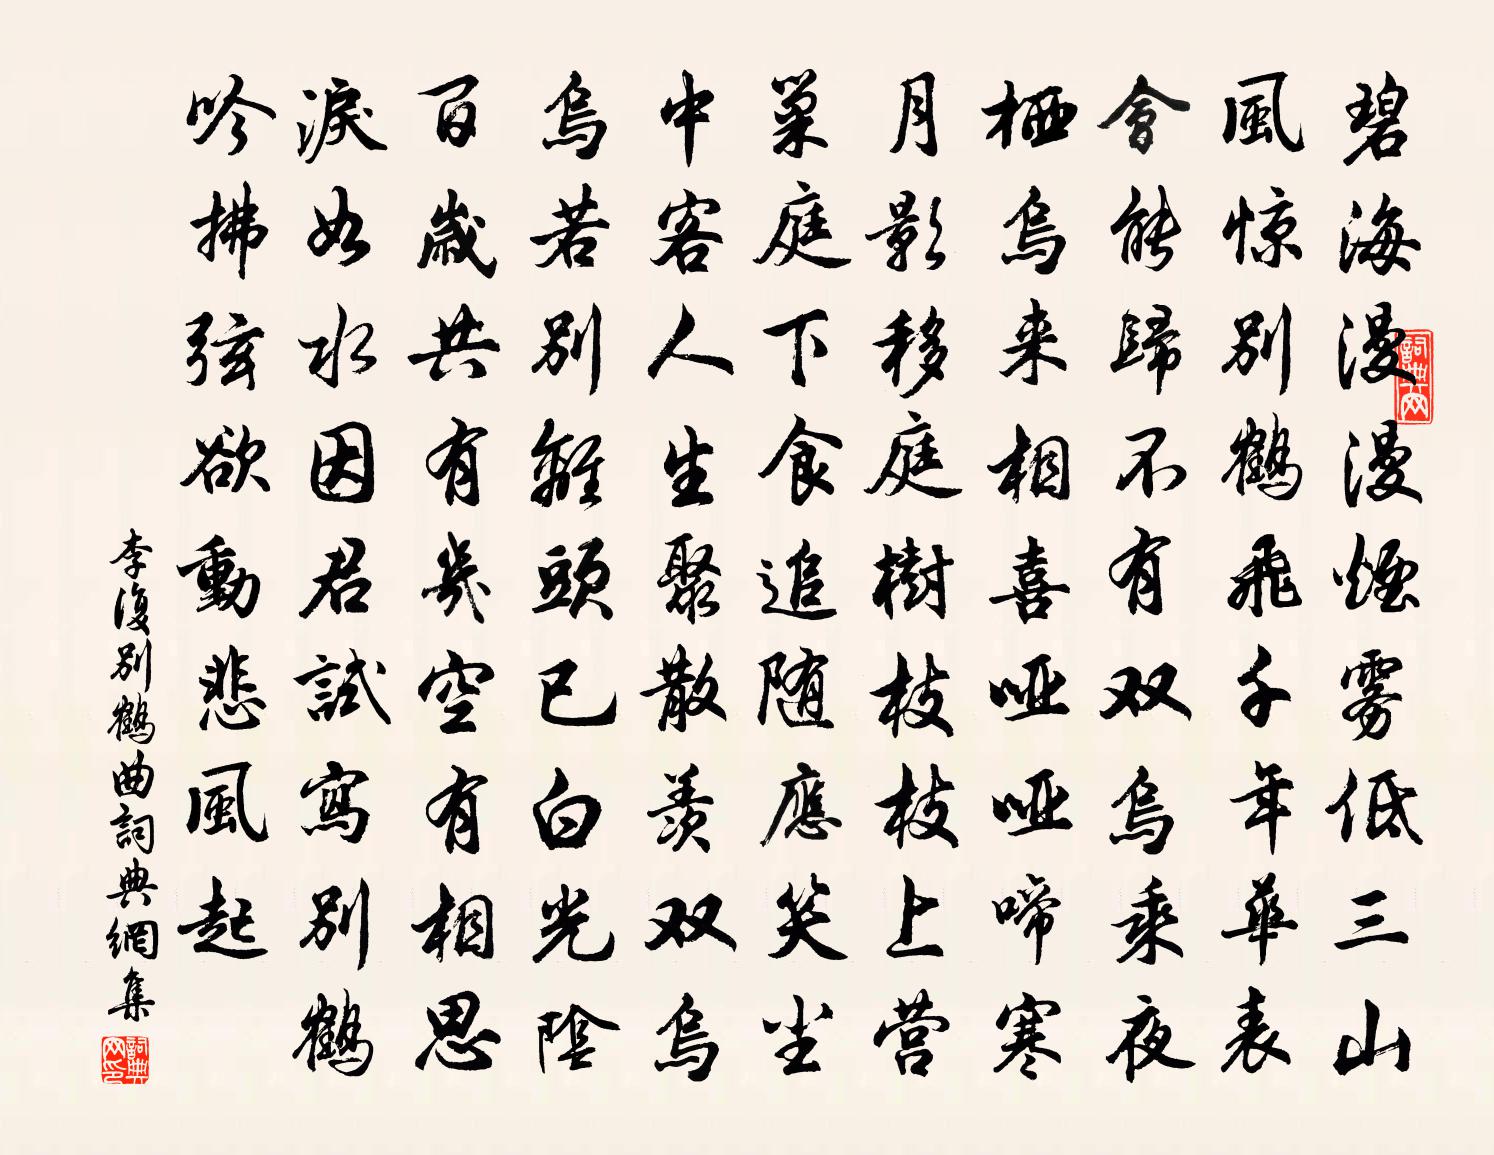 碧海漫漫煙雾低三山
風惊别鹤飛千年華表
會能歸不有双烏乘夜
栖烏来相喜哑哑啼寒
月影移庭樹枝枝上营
巢庭下食追随應笑尘
中客人生聚散羡双烏
烏若别離頭已白光陰
百歲共有幾空有相思
淚如水因君試寫别鹤
吟拂弦欲動悲風起
李復别鹤曲詞典網集
詞典网
詞典网印